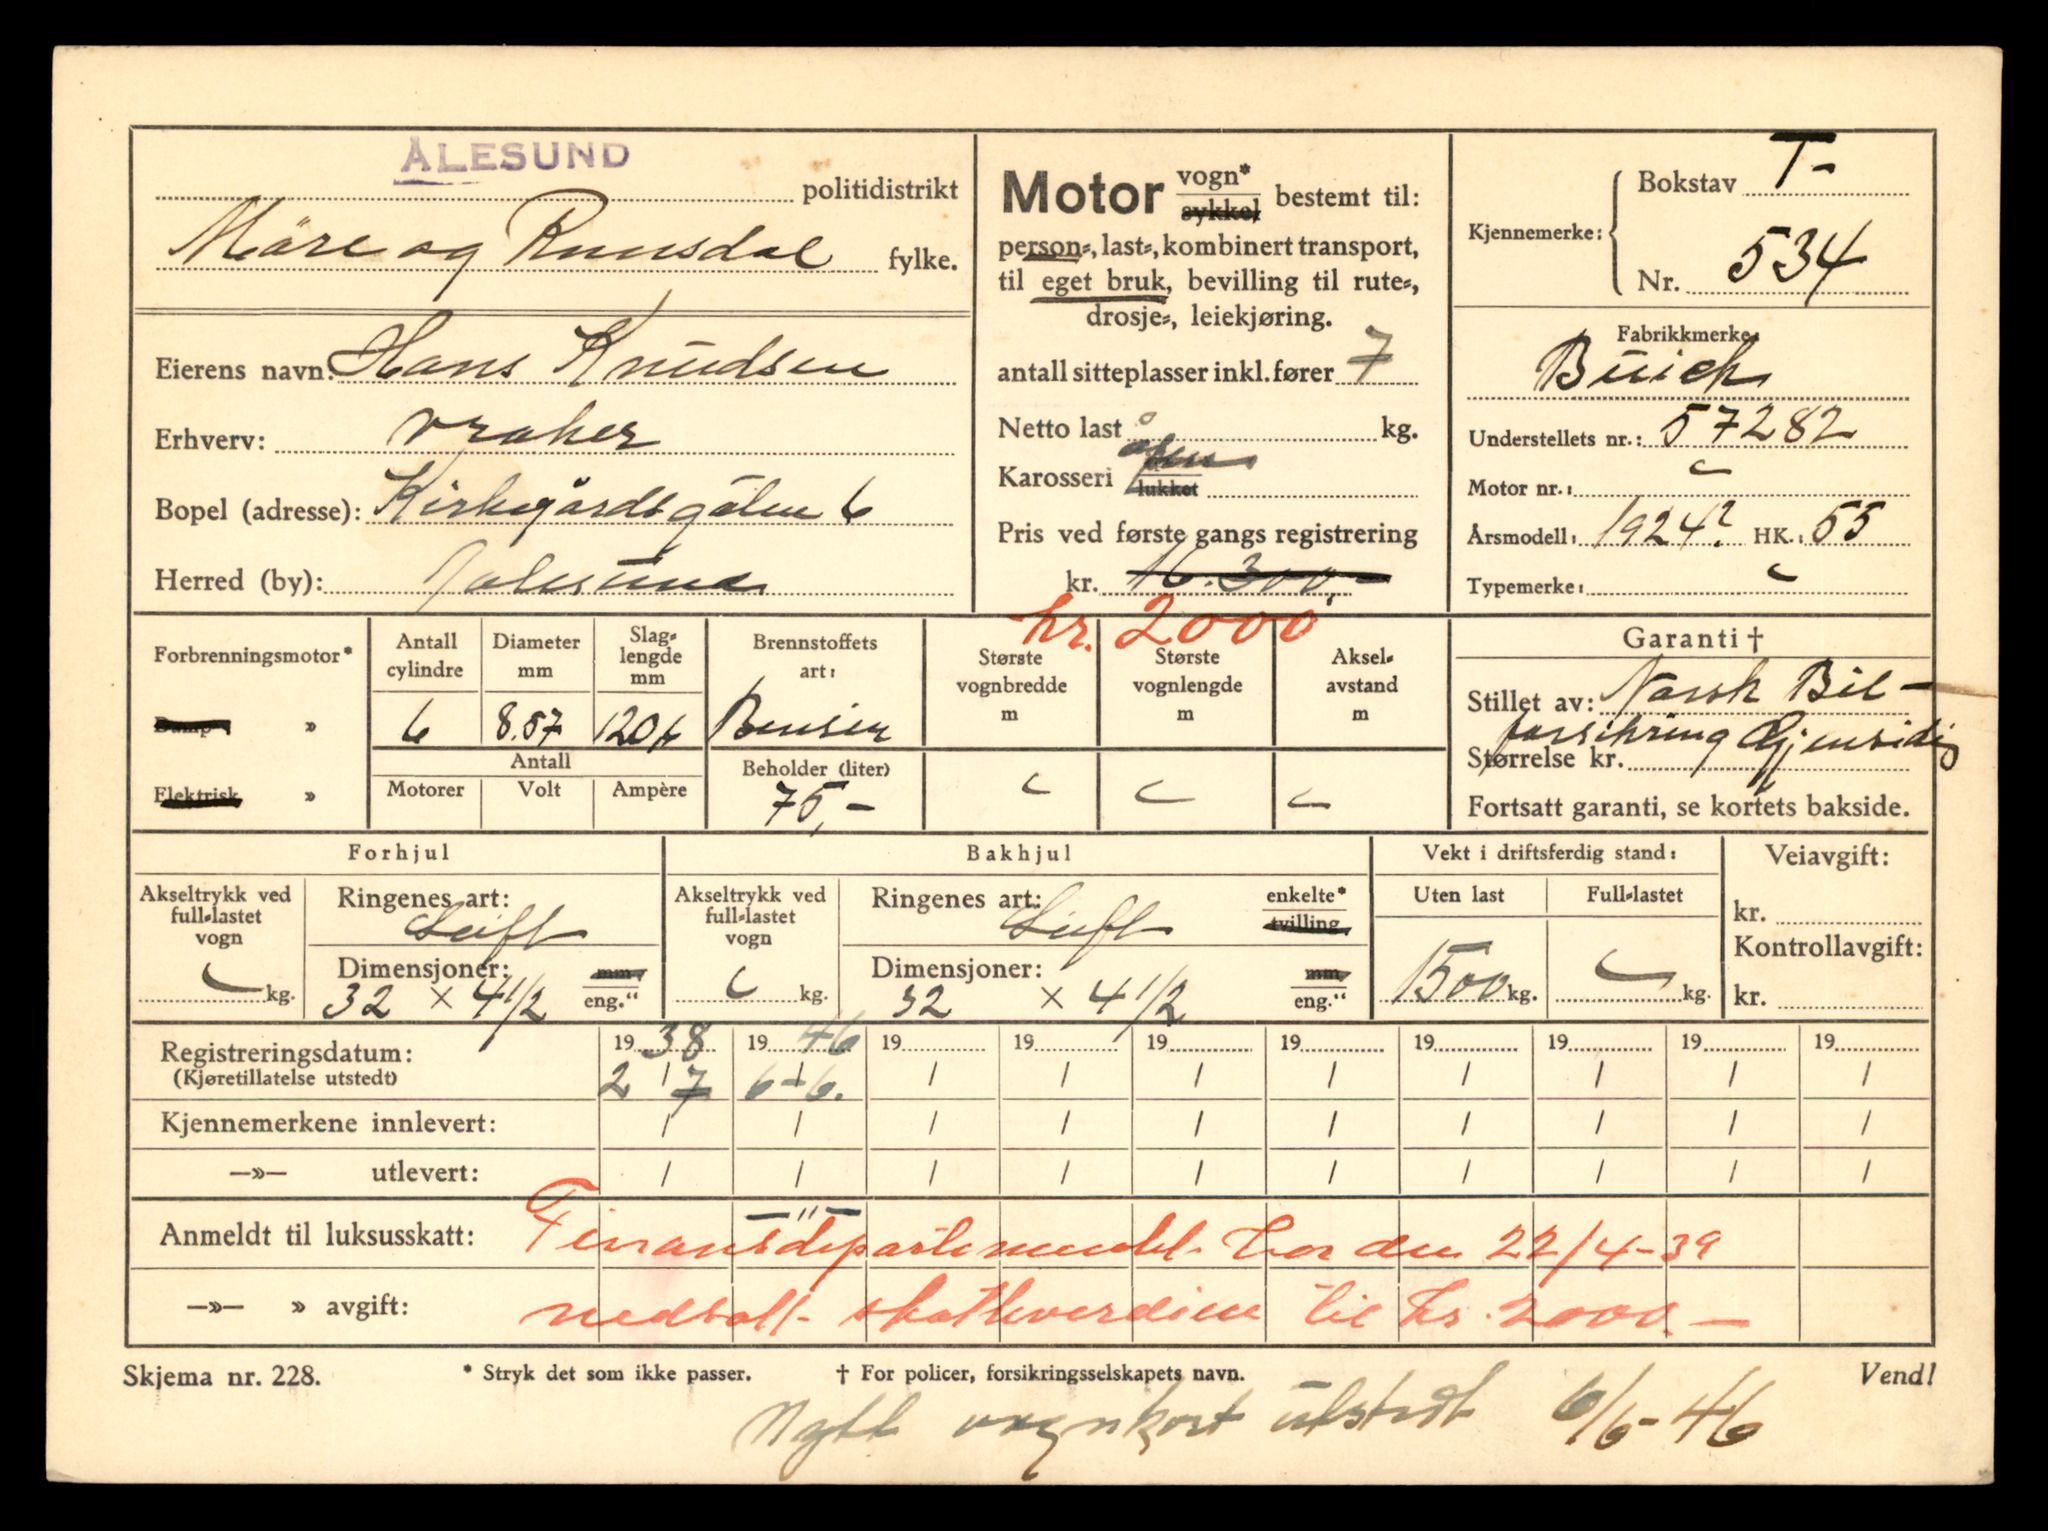 ÅLESUND
politidistrikt
Möre og Rumsdal fylke.
Eierens navn: Hans Knudsen
Erhverv: vraker
Bopel (adresse): Kirkegårdsgaten 6
Herred (by): Aalesund
Motor vogn* sykkel bestemt til:
person-, last-, kombinert transport,
til eget bruk, bevilling til rute-,
drosje-, leiekjøring.
antall sitteplasser inkl. fører 7
Netto last kg.
Karosseri åpen lukket
Pris ved første gangs registrering
kr. 16.300,-
kr. 2000
Kjennemerke: Bokstav T-
Nr. 534
Fabrikkmerke:
Buick
Understellets nr.: 57282
Motor nr.: -
Årsmodell: 1924? HK.: 55
Typemerke: -
Forbrenningsmotor*
Damp »
Elektrisk »
Antall cylindre
6
Diameter mm
8.57
Slag-lengde mm
120
Antall
Motorer Volt Ampère
Brennstoffets art:
Bensin
Beholder (liter)
75,-
Største vognbredde m
-
Største vognlengde m
-
Aksel-avstand m
-
Garanti †
Stillet av: Norsk Bil-
forsikring Gjensidig
Størrelse kr.
Fortsatt garanti, se kortets bakside.
Forhjul
Akseltrykk ved full-lastet vogn
- kg.
Ringenes art:
Luft
Dimensjoner: mm
32 × 4 1/2 eng."
Bakhjul
Akseltrykk ved full-lastet vogn
- kg.
Ringenes art: enkelte*
Luft tvilling
Dimensjoner: mm
32 × 4 1/2 eng."
Vekt i driftsferdig stand:
Uten last Full-lastet
1500 kg. - kg.
Veiavgift:
kr.
Kontrollavgift:
kr.
Registreringsdatum: 19 38 19 46 19 19 19 19 19 19 19 19
(Kjøretillatelse utstedt) 2 / 7 6-6. / / / / / / / /
Kjennemerkene innlevert: / / / / / / / / / /
—»— utlevert: / / / / / / / / / /
— " —
Anmeldt til luksusskatt: Finansdepartementet har den 22/4-39
—»— » avgift: nedsatt skatteverdien til kr. 2000.—
Skjema nr. 228. * Stryk det som ikke passer. † For policer, forsikringsselskapets navn. Vend!
Nytt vognkort utstedt 6/6-46